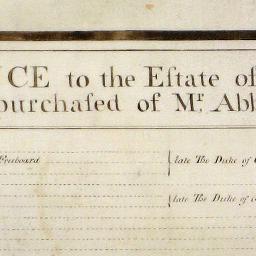 CE to the Eſtate of
purchaſed of Mr. Abb
Freeboard
late The Duke of
late The Duke of